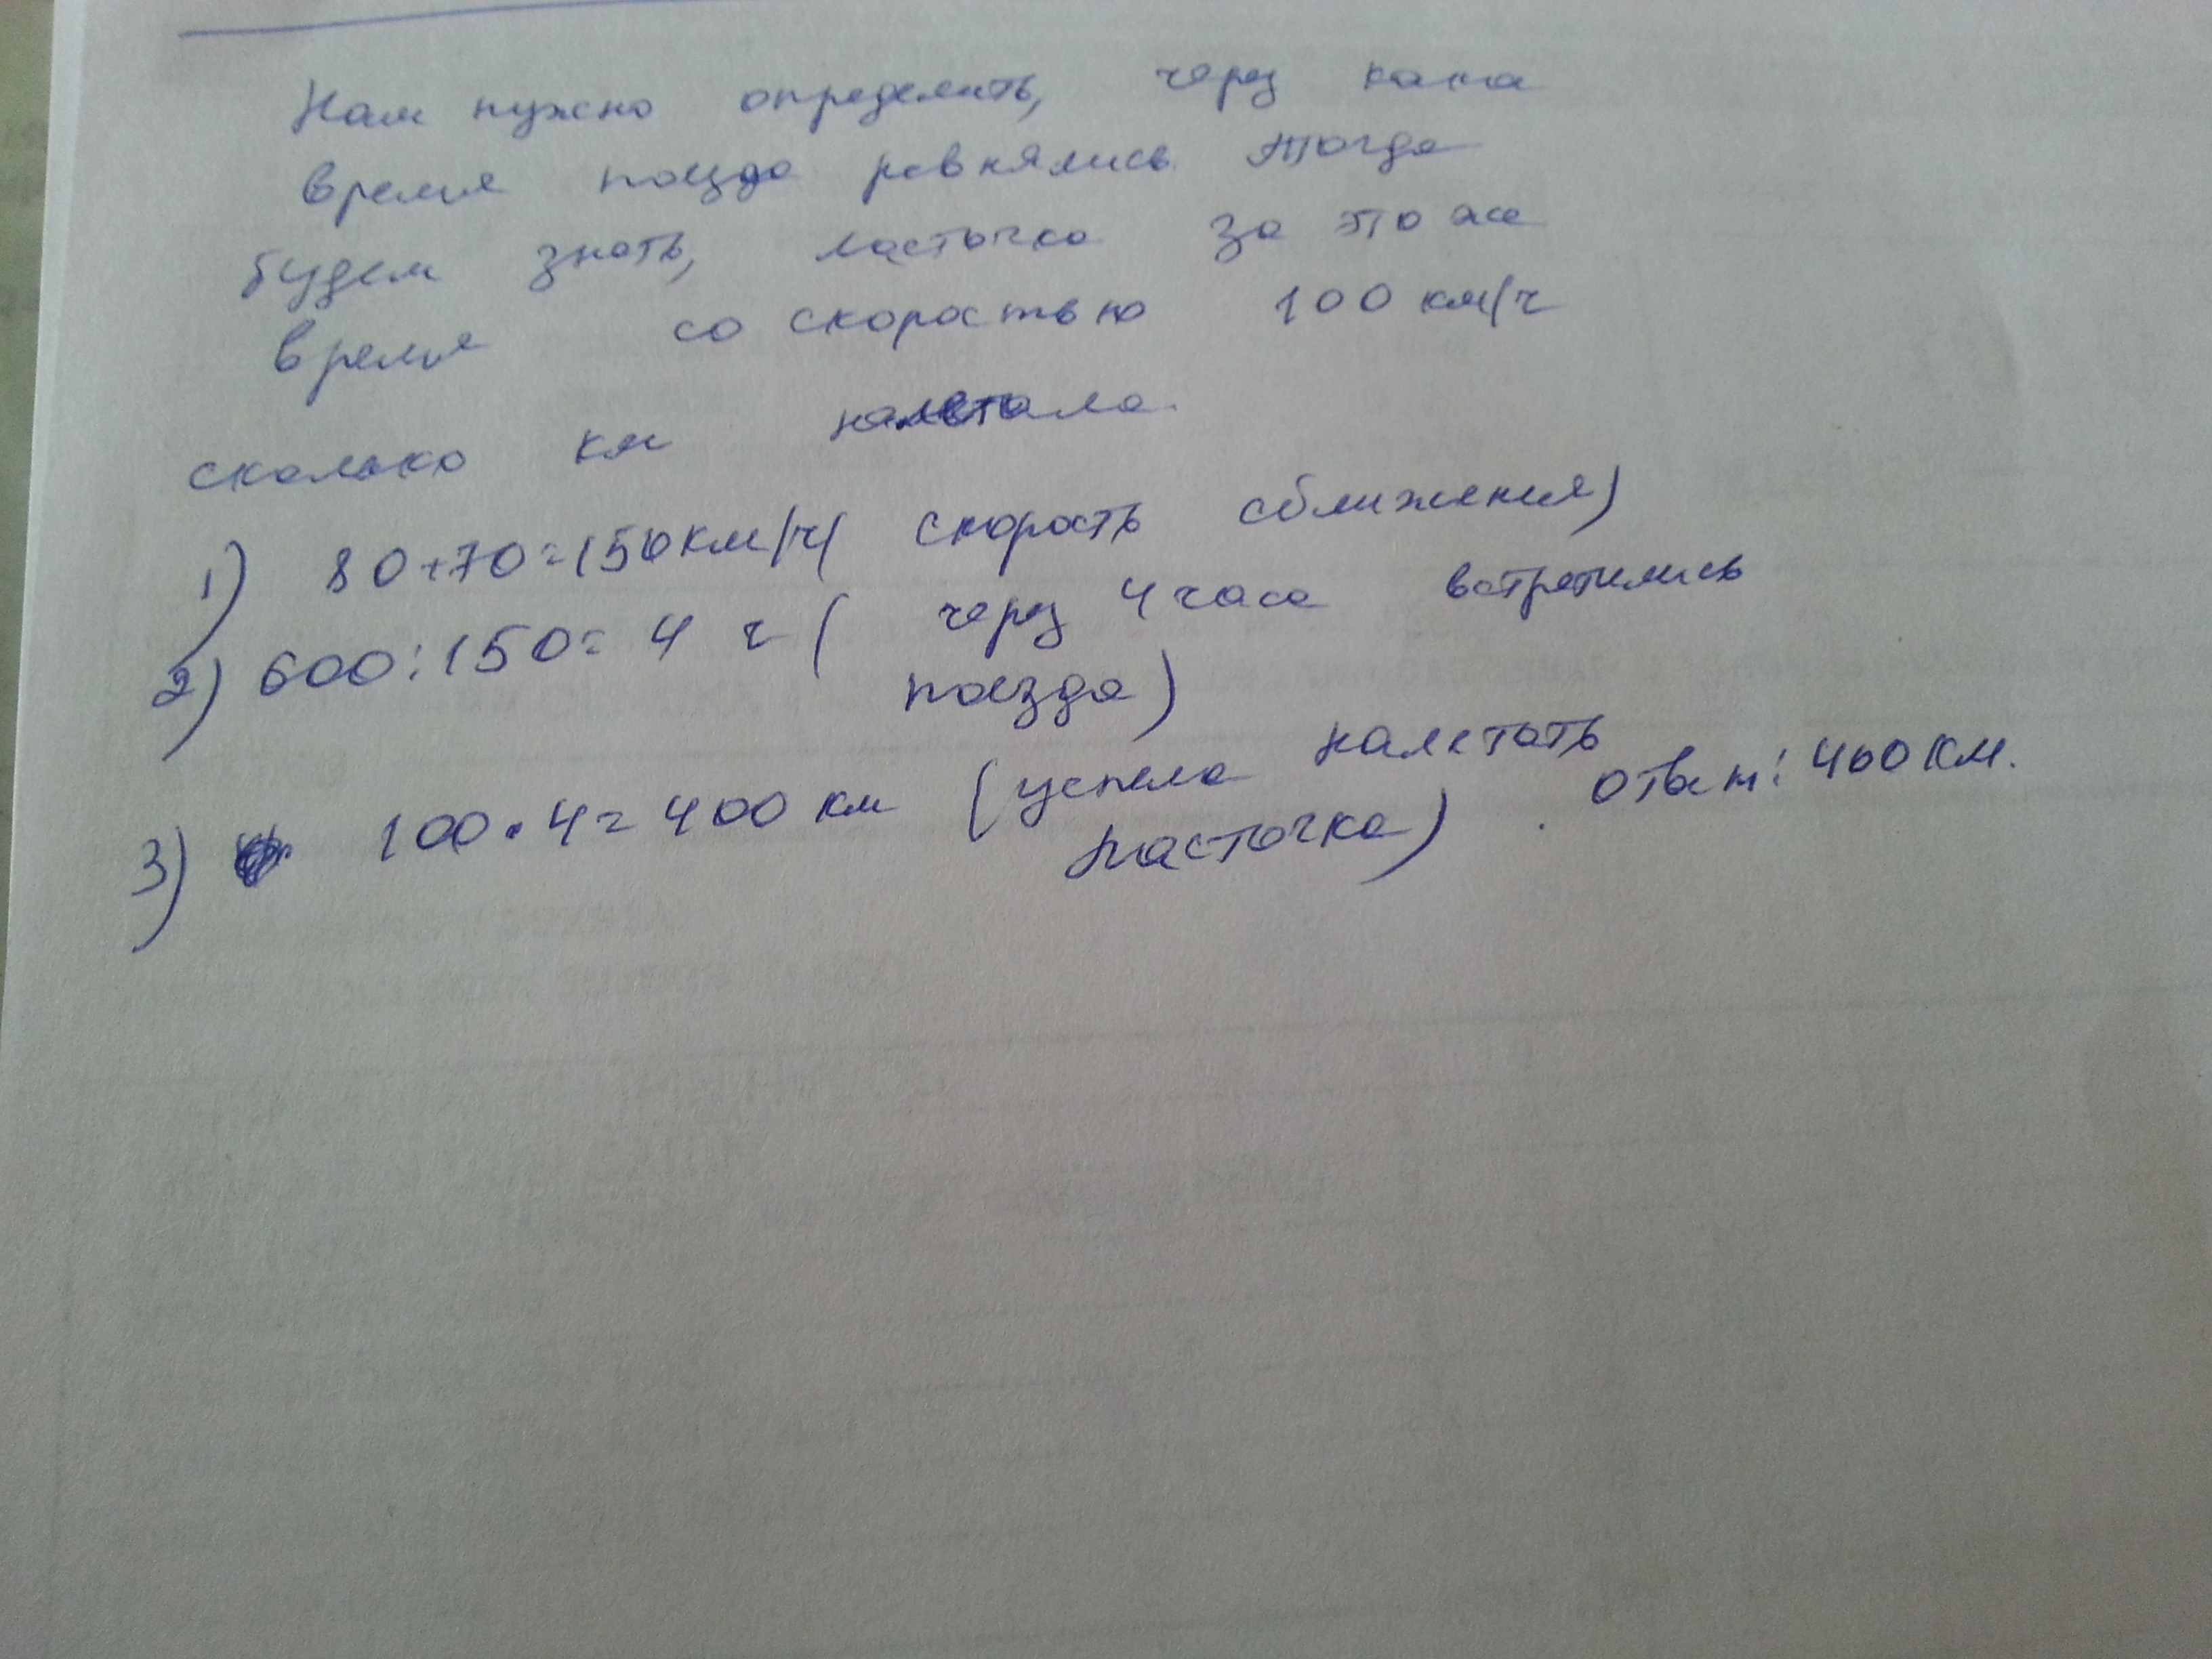 Нам нужно определить, через како
время поезда ровнялись. Тогда
будем знать, ласточка за то же
время со скоростью 100 км/ч
сколько км налетала.
1) 80+70=150км/ч( скорость сближения)
2) 600:150= 4 ч ( через 4 часа встретились
поезда)
3) 100·4= 400 км (успела налетать
ласточка). Ответ: 400 км.